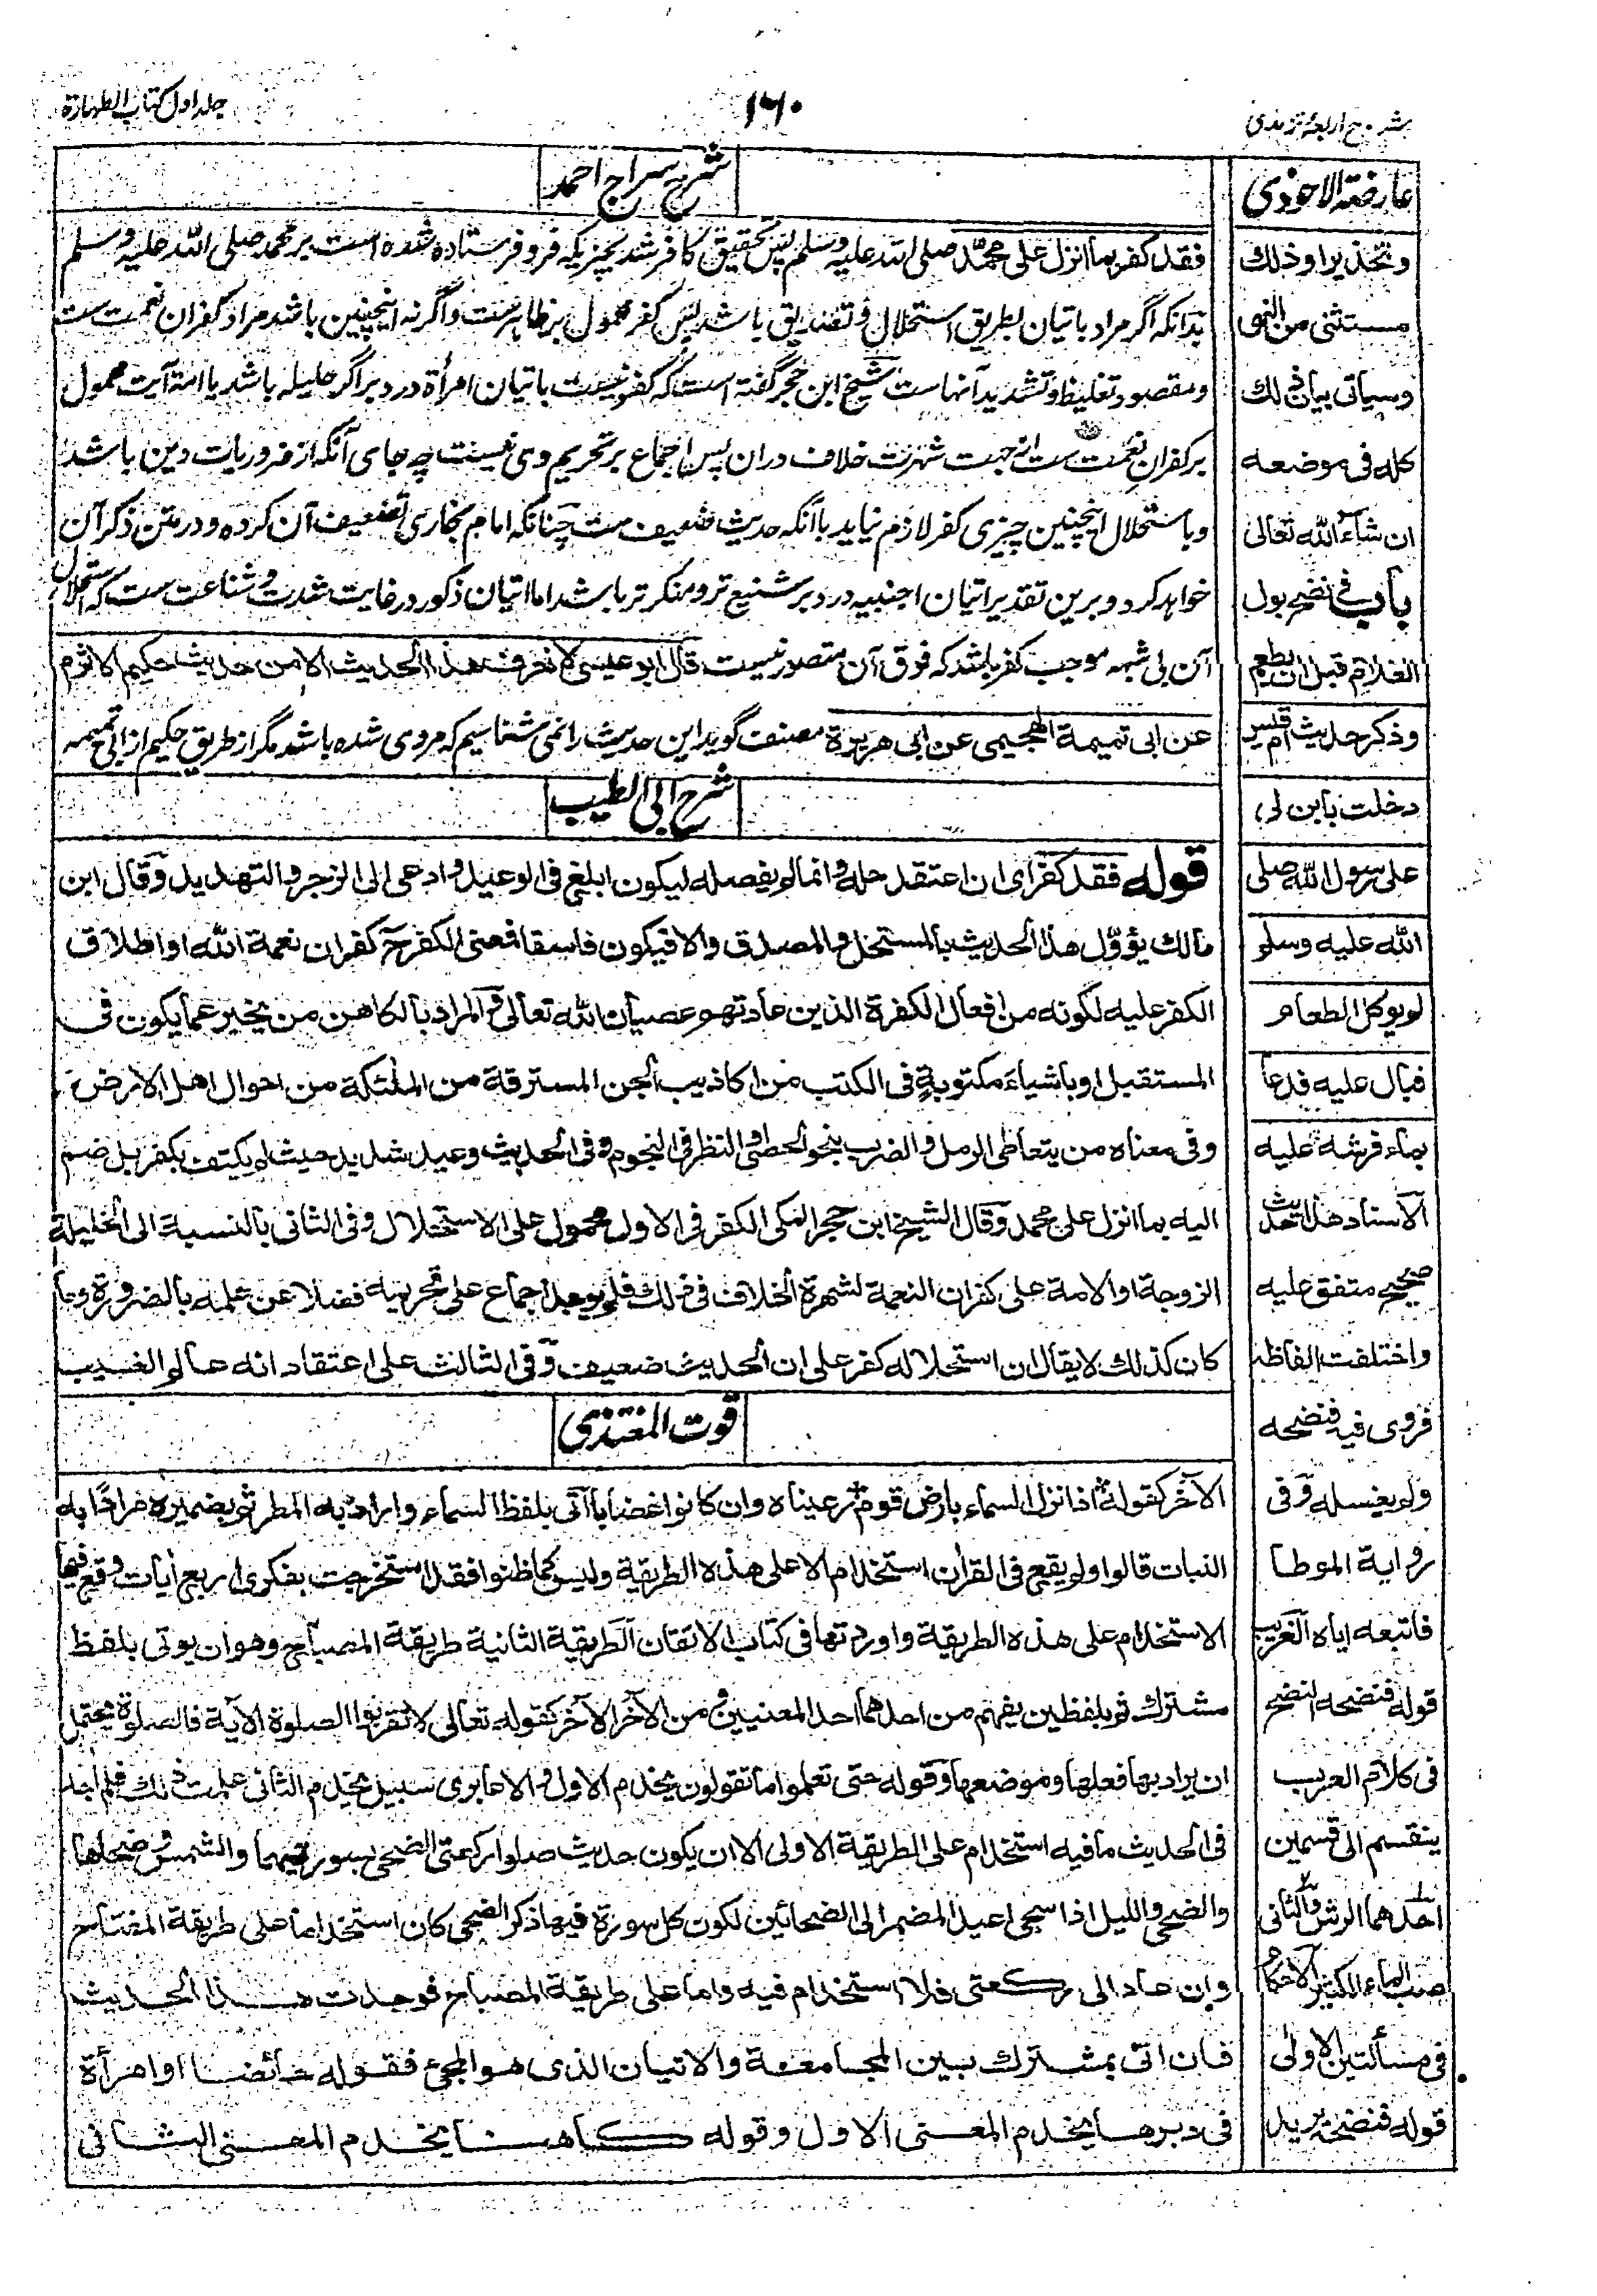 شروح اربعۀ ترمذی
۱۶۰
جلد اول کتاب الطهارة
عارضة الاحوذی
وتحذیرا وذلك
مستثنی من النهی
وسیأتی بیان ذلك
كله فی موضعه
ان شاء الله تعالی
باب فی نضح بول
الغلام قبل ان یطعم
وذكر حدیث ام قیس
دخلت بابن لی
علی رسول الله صلی
الله علیه وسلم
لم یوكل الطعام
فبال علیه فدعا
بماء فرشه علیه
الاسناد هذا حدیث
صحیح متفق علیه
واختلفت الفاظه
فروی فیه فنضحه
ولم یغسله وفی
روایة الموطا
فاتبعه ایاه الغریب
قوله فنضحه النضح
فی كلام العرب
ینقسم الی قسمین
احدهما الرش والثانی
صب الماء الكثیر الاحكام
فی مسألتین الاولی
قوله فنضحه یرید
شرح سراج احمد
فقد كفر بما انزل علی محمد صلی الله علیه وسلم پس تحقیق کافر شد بچیزیکه فرو فرستاده شده است بر محمد صلی الله علیه وسلم
بدانکه اگر مراد باتیان بطریق استحلال وتصدیق باشد پس کفر محمول بر ظاهرست واگر نه اینچنین باشد مراد کفران نعمت ست
ومقصود تغلیظ وتشدید آنهاست شیخ ابن حجر گفته است که کفر نیست باتیان امرأة در دبر اگر حلیله باشد یا امة آیت محمول
بر کفران نعمت ست از جهت شهرت خلاف دران پس اجماع بر تحریم وی نیست چه جای آنکه از ضروریات دین باشد
وباستحلال اینچنین چیزی کفر لازم نیاید با آنکه حدیث ضعیف ست چنانکه امام بخاری تضعیف آن کرده ودر متن ذکر آن
خواهد کرد وبرین تقدیر اتیان اجنبیه در دبر شنیع تر ومنکر تر باشد اما اتیان ذکور در غایت شدت وشناعت ست که استحلال
آن بی شبهه موجب کفر باشد که فوق آن متصور نیست قال ابو عیسی لا نعرف هذا الحدیث الا من حدیث حکیم الاثرم
عن ابی تمیمة الهجیمی عن ابی هریرة مصنف گوید این حدیث را نمی شناسیم که مروی شده باشد مگر از طریق حکیم از ابی تمیمه
شرح ابی الطیب
قوله فقد كفر ای ان اعتقد حله وانما لم یفصله لیكون ابلغ فی الوعید وادعی الی الزجر والتهدید وقال ابن
مالك یؤول هذا الحدیث بالمستحل والمصدق والا فیكون فاسقا فمعنی الكفر ح كفران نعمة الله او اطلاق
الكفر علیه لكونه من افعال الكفرة الذین عادتهم عصیان الله تعالی والمراد بالكاهن من یخبر عما یكون فی
المستقبل او باشیاء مكتوبة فی الكتب من اكاذیب الجن المسترقة من الملئكة من احوال اهل الارض
وفی معناه من یتعاطی الرمل والضرب بنحو الحصی والنظر فی النجوم وفی الحدیث وعید شدید حیث لم یكتف بكفر بل ضم
الیه بما انزل علی محمد وقال الشیخ ابن حجر المكی الكفر فی الاول محمول علی الاستحلال وفی الثانی بالنسبة الی الحلیلة
الزوجة او الامة علی كفران النعمة لشهرة الخلاف فی ذلك فلم یوجد اجماع علی تحریمه فضلا عن علمه بالضرورة وما
كان كذلك لا یقال ان استحلاله كفر علی ان الحدیث ضعیف وفی الثالث علی اعتقاد انه عالم الغیب
قوت المغتذی
الآخر كقوله اذا نزل السماء بارض قوم رعیناه وان كانوا غضابا اتی بلفظ السماء واراد به المطر ثم بضمیره مرادا به
النبات قالوا ولم یقع فی القرأن استخدام الا علی هذه الطریقة ولیس كما ظنوا فقد استخرجت بفكری اربع أیات وقع فیها
الاستخدام علی هذه الطریقة واوردتها فی كتاب الاتقان الطریقة الثانیة طریقة المصباح وهو ان یوتی بلفظ
مشترك ثم بلفظین یفهم من احدهما احد المعنیین ومن الآخر الآخر كقوله تعالی لا تقربوا الصلوة الآیة فالصلوة یحتمل
ان یراد بها فعلها وموضعها وقوله حتی تعلموا ما تقولون یخدم الاول والا عابری سبیل یخدم الثانی علمت ذلك فلم اجد
فی الحدیث ما فیه استخدام علی الطریقة الاولی الا ان یكون حدیث صلوا ركعتی الضحی بسورتیهما والشمس وضحاها
والضحی واللیل اذا سجی اعید المضمر الی الضحائین لكون كل سورة فیها ذكر الضحی كان استخداما علی طریقة المفتاح
وان عاد الی ركعتی فلا استخدام فیه واما علی طریقة المصباح فوجدت هذا الحدیث
فان اتی بمشترك بین المجامعة والاتیان الذی هو المجئ فقوله حائضا او امرأة
فی دبرها یخدم المعنی الاول وقوله كاهنا یخدم المعنی الثانی